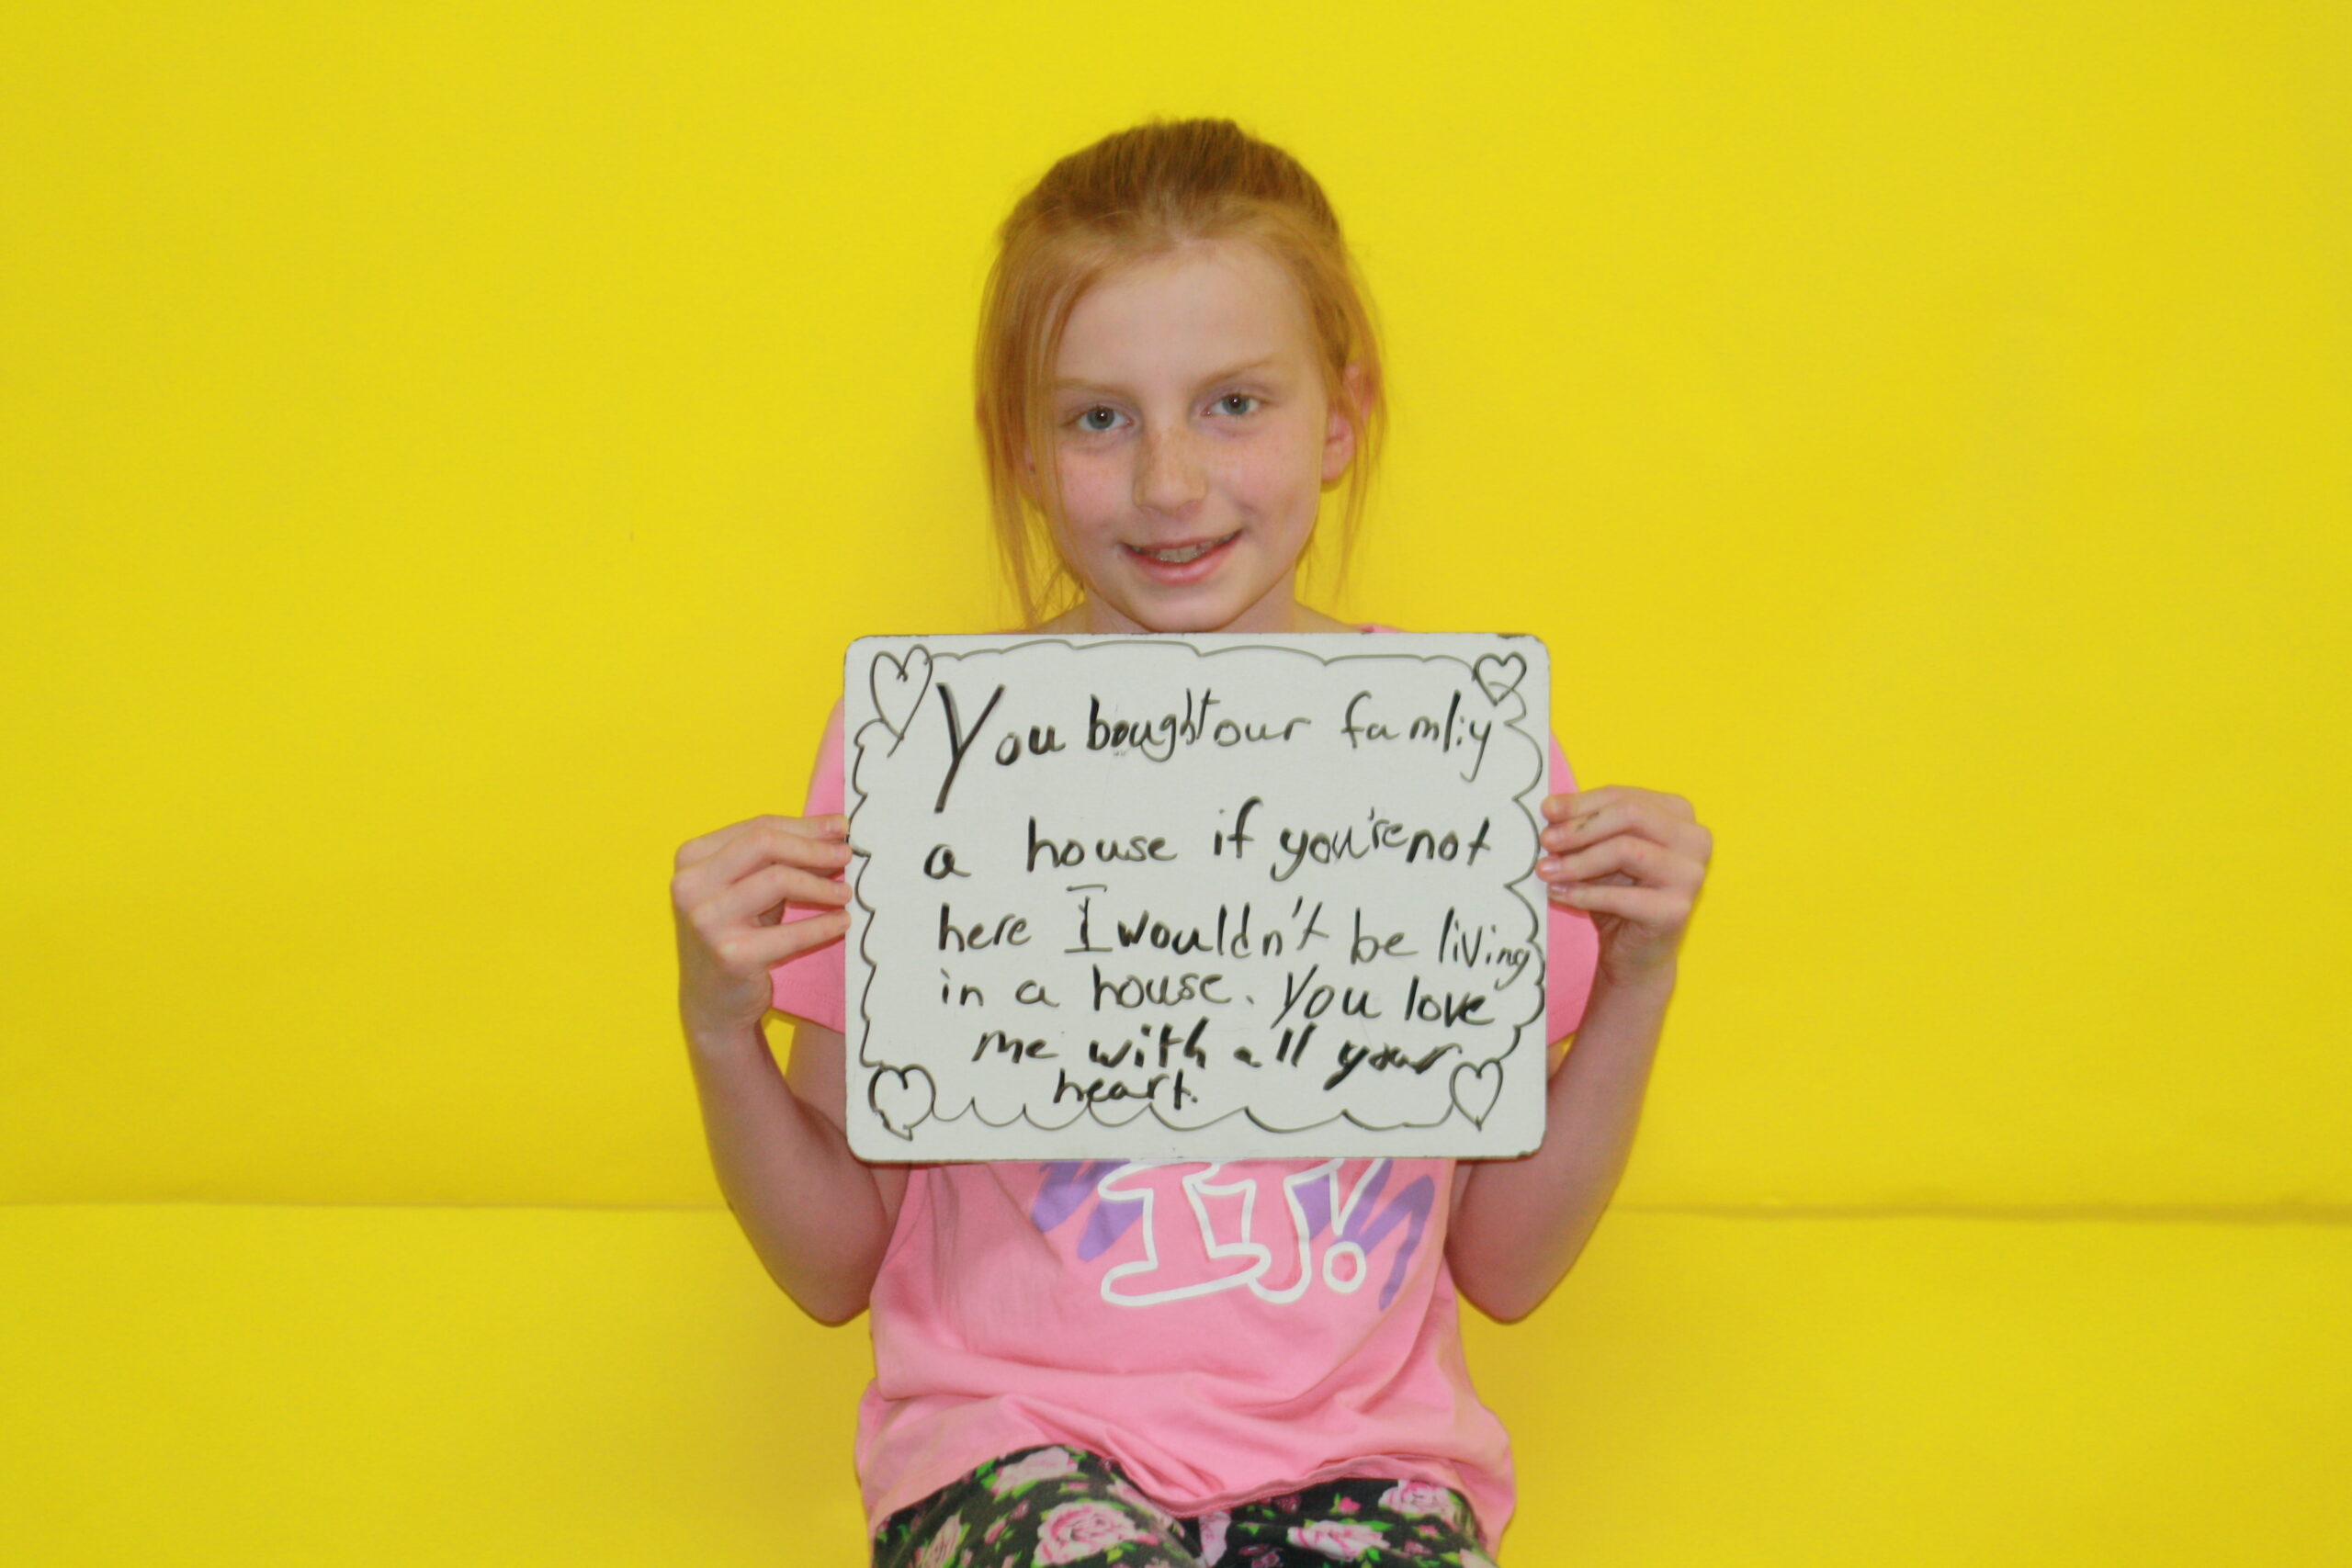 You bought our famliy
a house if you're not
here I wouldn't be living
in a house. You love
me with all your
heart.
IT!